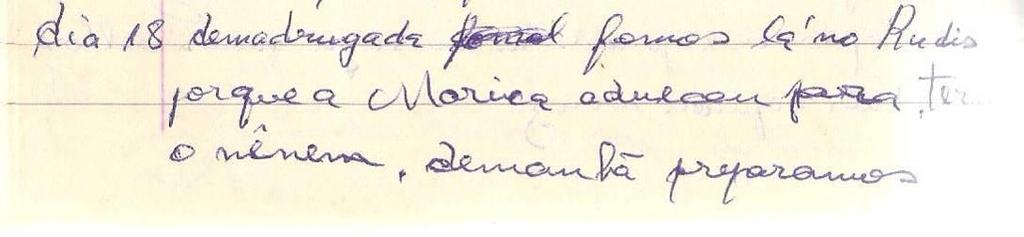 dia 18 demadrugada fomos lá no Rudis
porque a Marica adueceu para ter
o nênem, demanhã preparamos